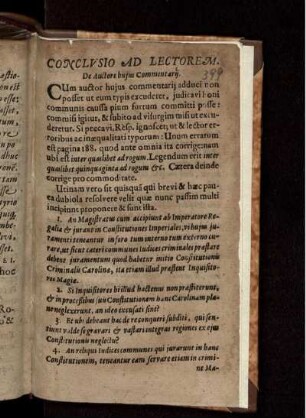 CONCLVSIO AD LECTOREM.
399
De Auctore hujus Commentarij.
CUm auctor hujus commentarij adduci non
posset ut eum typis excuderet, judicavi boni
communis caussa pium furtum committi posse:
commisi igitur, & subitò ad vi suum ut ex cu-
deretur. Si peccavi, Resp. ignoscet, ut & lector er-
roribus ac inæqualitati typorum: Unum erratum
est pagina 188. quod ante omnia ita corrigen dum
ubi est inter qualibet ad rogum. Legendum erit inter
qualibet quinquaginta ad rogum &c. Cætera deinde
corrige pro commoditate.
Utinam vero sit quisquis qui brevi & hæc pau-
ca dubiola resolvere velit quæ nunc passim multi
incipiunt proponere & sunt ista.
1. An Magistratus cum accipiunt ab Imperatore Re-
galia & jurant in Constitutiones Imperiales, vi hujus ju-
ramenti teneantur in foro tum interno tum externo cu-
rare, ut sicut cæteri communes Iudices criminales præstare
debent juramentum quod habetur initio Constitutionis
Criminalis Carolinæ, ita etiam illud præsent Inquisito-
res Magiæ.
2. Si Inquisitores hi illud hactenus non præstiterunt,
& in processibus suis Constitutionem hanc Carolinam planè
neglexerunt, an ideo excusati sint?
3. Et ubi debeant hac de re conqueri subditi, qui sen-
tiunt valde se gravari & vastari integras regiones ex ejus
Constitutionis neglectu?
4. An reliqui Iudices communes qui jurarunt in hanc
Constitutionem, teneantur eam servare etiam in crimi-
ne Ma-